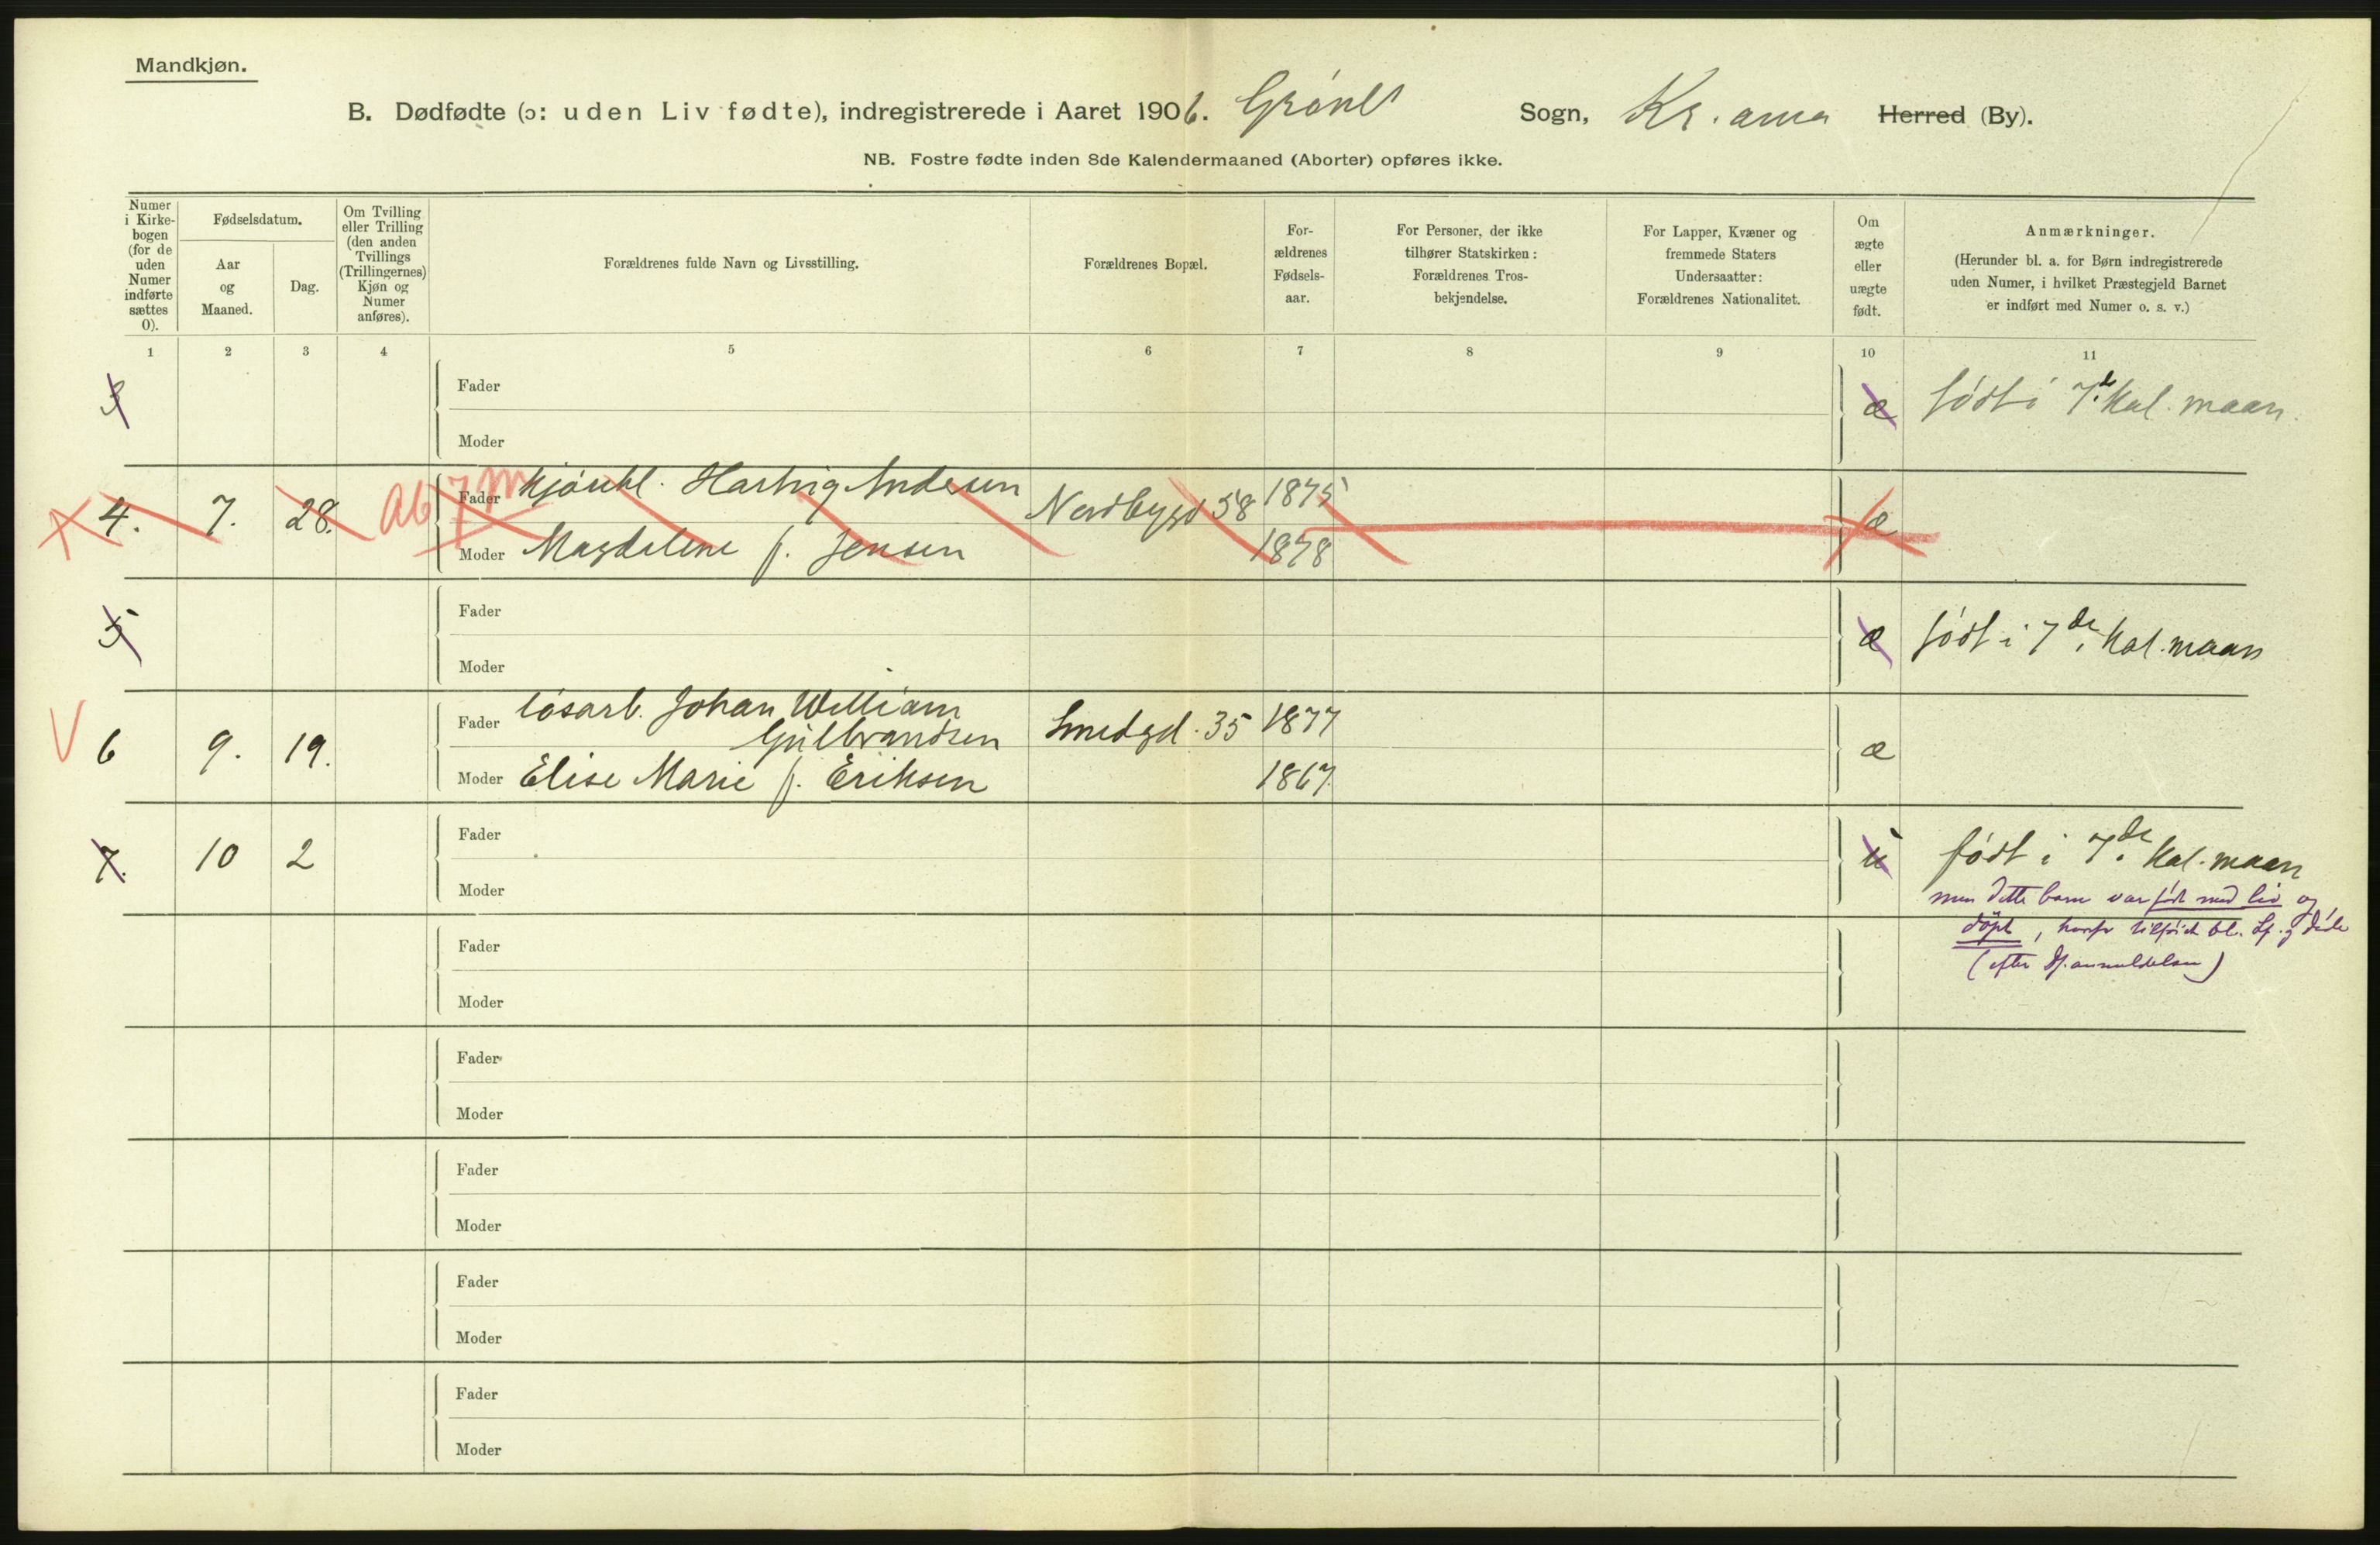 Mandkjøn.
B. Dødfødte (ɔ: uden Liv fødte), indregistrerede i Aaret 1906. Grønl Sogn, Kr.ania Herred (By).
NB. Fostre fødte inden 8de Kalendermaaned (Aborter) opføres ikke.
Numer
i Kirke-
bogen
(for de
uden
Numer
indførte
sættes
0).
Fødselsdatum.
Aar
og
Maaned.
Dag.
Om Tvilling
eller Trilling
(den anden
Tvillings
(Trillingernes)
Kjøn og
Numer
anføres).
Forældrenes fulde Navn og Livsstilling.
Forældrenes Bopæl.
For-
ældrenes
Fødsels-
aar.
For Personer, der ikke
tilhører Statskirken:
Forældrenes Tros-
bekjendelse.
For Lapper, Kvæner og
fremmede Staters
Undersaatter:
Forældrenes Nationalitet.
Om
ægte
eller
uægte
født.
Anmærkninger.
(Herunder bl. a. for Børn indregistrerede
uden Numer, i hvilket Præstegjeld Barnet
er indført med Numer o. s. v.)
1 2 3 4 5 6 7 8 9 10 11
3 Fader æ født i 7de Kal. maan.
Moder
4. 7. 28. Ab 7 m Fader Kjøskbl. Hartvig Andesen Nordbygd 58 1875 æ
Moder Magdalene f. Jensen 1878
5 Fader æ født i 7de Kal. maan
Moder
6 9. 19. Fader løsarb. Johan William
Gulbrandsen Smedgd. 35 1877 æ
Moder Elise Marie f. Eriksen 1867.
7. 10 2 Fader u født i 7de Kal. maan
Moder
men dette barn var født med liv og
døpt, tilføiet bl. Lf. og døde
(efter Df. anmeldelsen)
Fader
Moder
Fader
Moder
Fader
Moder
Fader
Moder
Fader
Moder